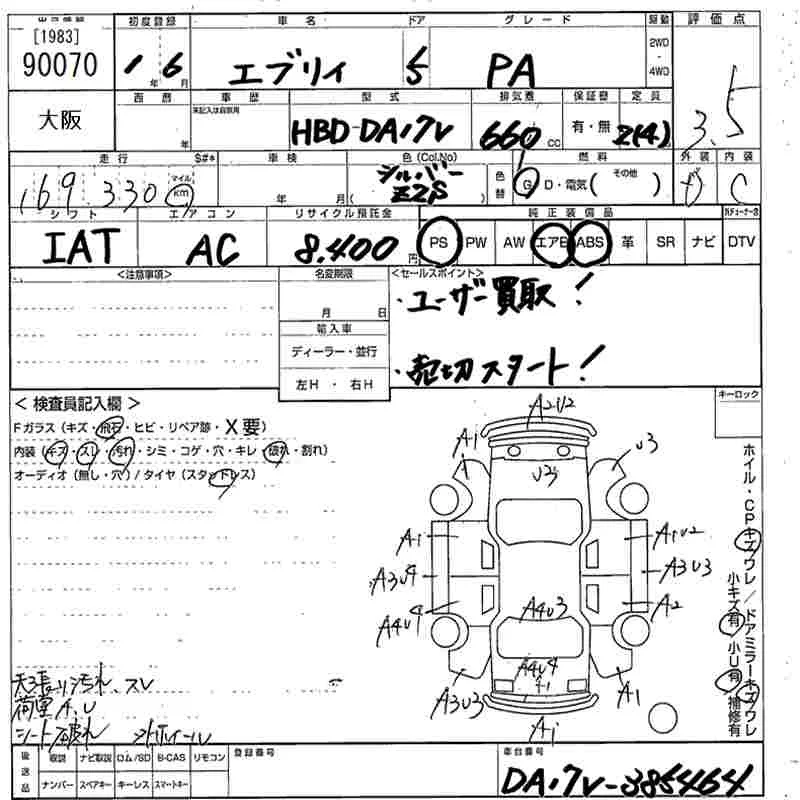 [1983]
90070
大阪
初度登録
1年6月
車名
エブリイ
ドア
5
グレード
PA
駆動
2WD
-
4WD
評価点
3.5
西暦
年
車歴
未記入は自家用
型式
HBD-DA17V
排気量
660cc
保証書
有・無
定員
2(4)
走行 $#*
169,330
マイル
km
車検
年 月(
色(Col.No)
シルバー
Z2S
)
色替
燃料
G D・電気( その他 )
外装
D
内装
C
シフト
IAT
エアコン
AC
リサイクル預託金
8,400円
純正装備品
PS PW AW エアB ABS 革 SR ナビ
DTV
<注意事項>
名変期限
月 日
輸入車
ディーラー・並行
左H・右H
<セールスポイント>
・ユーザー買取!
・売切スタート!
<検査員記入欄>
Fガラス(キズ・飛石・ヒビ・リペア跡・X要)
内装(キズ・スレ・汚れ・シミ・コゲ・穴・キレ・破れ・割れ)
オーディオ(無し・穴)/タイヤ(スタッドレス)
キーロック
A2U2
A1
U3
U3
A1
A1U2
A3U4
A3U3
A4U4
A2
A4U3
A4U4
A1
A3U3
A1
A1
ホイル・CPキズワレ/ドアミラーキズワレ
小キズ有 小U有 補修有
天張り汚れ、スレ
荷室A,U
シート破れ
後送品
取説 ナビ取説 ロム/SD B-CAS リモコン
ナンバー スペアキー キーレス スマートキー
登録番号
車台番号
DA17V-385464